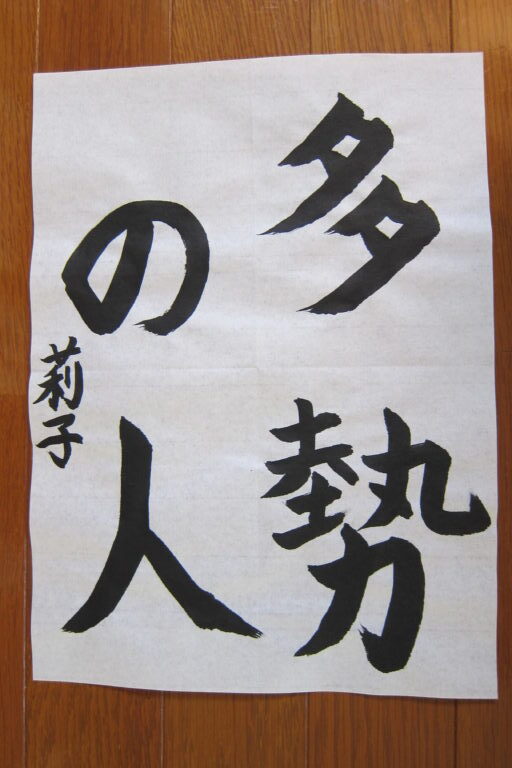 多勢
の人
莉子